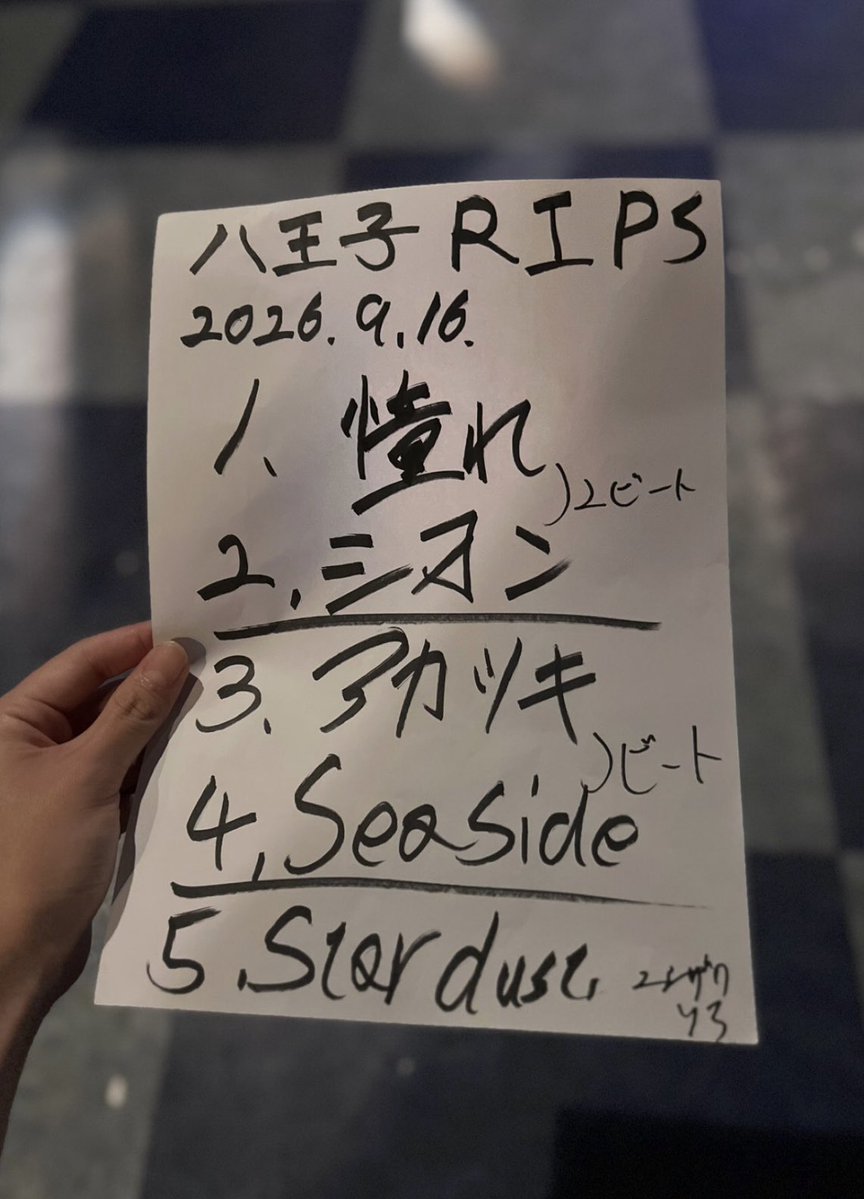 八王子 RIPS
2026.9.16.
1、憧れ
)2ビート
2.シオン
3、アカツキ
)ビート
4.Seaside
5.Stardust.